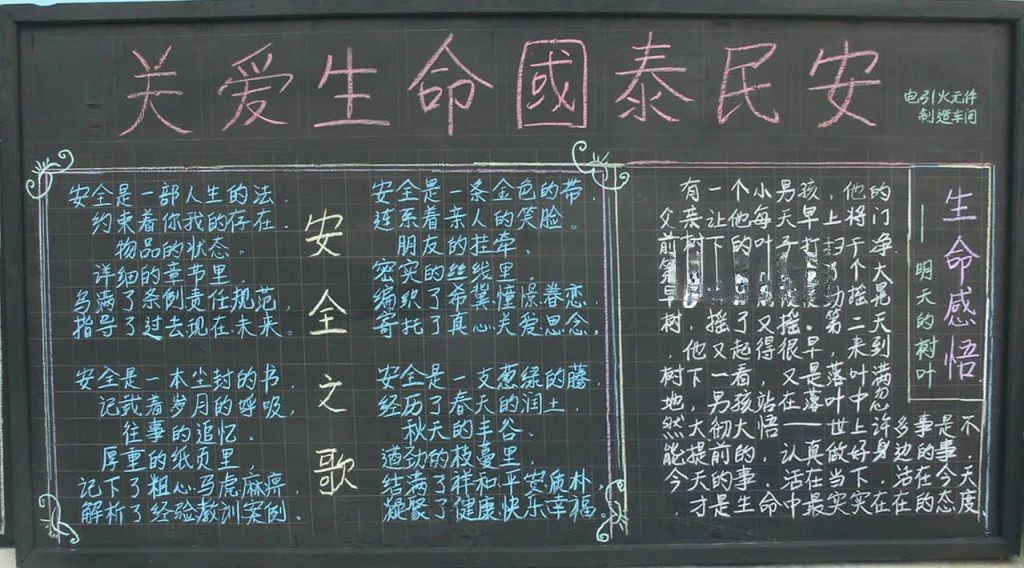 关爱生命國泰民安
电引火元件
制造车间
安全之歌
安全是一部人生的法，
约束着你我的存在、
物品的状态。
详细的章节里，
写满了条例责任规范，
指导了过去现在未来。
安全是一条金色的带，
连系着亲人的笑脸。
朋友的挂牵。
密实的丝线里，
编织了希冀憧憬眷恋，
寄托了真心关爱思念，
安全是一本尘封的书，
记载着岁月的呼吸，
往事的追忆。
厚重的纸页里，
记下了粗心马虎麻痹，
解析了经验教训案例。
安全是一支葱绿的藤，
经历了春天的润土，
秋天的丰谷、
遒劲的枝蔓里
结满了祥和平安质朴，
凝聚了健康快乐幸福。
生命感悟
——明天的树叶
有一个小男孩，他的
父亲让他每天早上将门
前树下的叶子打扫净
个大
早 摇晃
树，摇了又摇。第二天
，他又起得很早，来到
树下一看，又是落叶满
地，男孩站在落叶中忽
然大彻大悟——世上许多事是不
能提前的，认真做好身边的事，
今天的事，活在当下，活在今天
，才是生命中最实实在在的态度